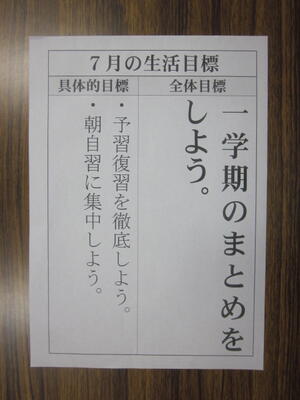 7月の生活目標
全体目標
一学期のまとめを
しよう。
具体的目標
・予習復習を徹底しよう。
・朝自習に集中しよう。